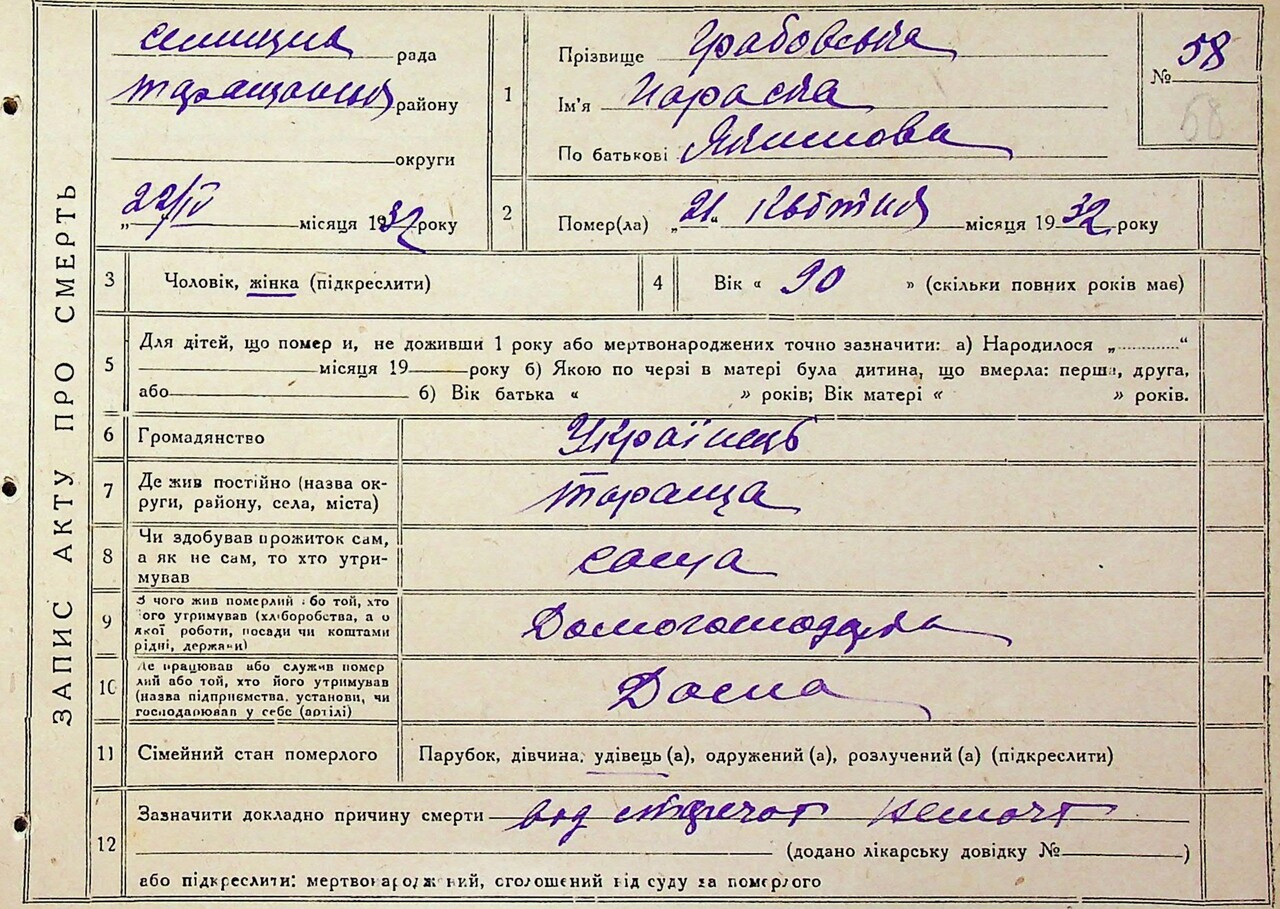 ЗАПИС АКТУ ПРО СМЕРТЬ
рада
району
округи
„22/IV місяця 1932 року
1
Прізвище Грабовська
Ім'я Параска
По батькові Якимова
№ 58
58
2
Помер(ла) „21“ Квітня місяця 1932 року
3
Чоловік, жінка (підкреслити)
4
Вік « 90 » (скільки повних років має)
5
Для дітей, що помер и, не доживши 1 року або мертвонароджених точно зазначити: а) Народилося „..........“
місяця 19 року б) Якою по черзі в матері була дитина, що вмерла: перша, друга,
або б) Вік батька « » років; Вік матері « » років.
6
Громадянство
Українець
7
Де жив постійно (назва ок-
руги, району, села, міста)
Тараща
8
Чи здобував прожиток сам,
а як не сам, то хто утри-
мував
сама
9
З чого жив померлий або той, хто
його утримував (хліборобства, а о
якої роботи, посади чи коштами
рідні, держави)
10
Де працював або служив помер
лий або той, хто його утримував
(назва підприємства, установи, чи
господарював у себе (артілі)
Дома
11
Сімейний стан померлого
Парубок, дівчина, удівець (а), одружений (а), розлучений (а) (підкреслити)
12
Зазначити докладно причину смерти
(додано лікарську довідку № )
або підкреслити: мертвонароджений, оголошений від суду за померлого